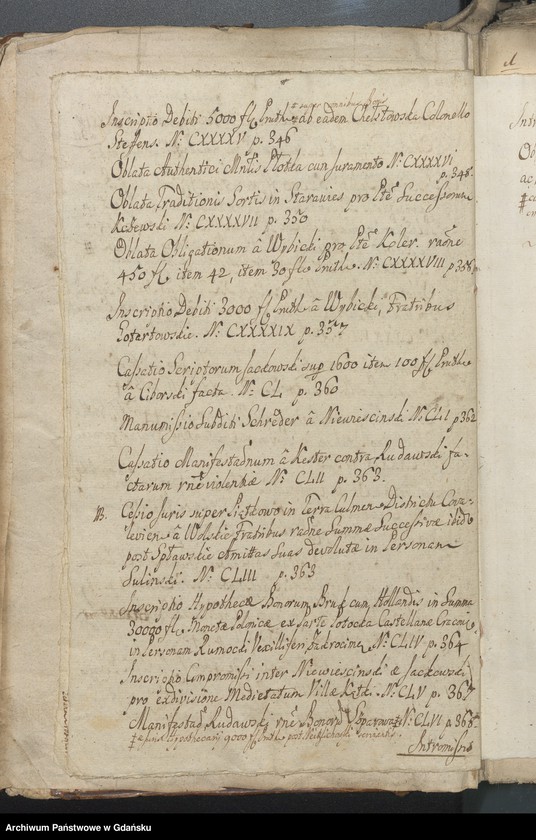 Inscriptio Debiti 5000 fl. Pruth. ab eadem Chelstowska Colonello
Steffens. No. CXXXXV p. 346
Oblata Authentici Mntis Plotka cum Juramento No. CXXXXVI
p. 348
Oblata Traditionis Sortis in Starawies pro Pte Successorum
Kczewski No. CXXXXVII p. 350
Oblata Obligationum â Wybicki pro Pte Koler. raõne
450 fl. item 42, item 30 fl. Pruth. No. CXXXXVIII p. 358
Inscriptio Debiti 3000 fl. Pruth. â Wybicki, Fratribus
No. CXXXXIX p. 357
Cassatio Scriptorum Jackowski sup 1600 item 100 fl. Pruth.
â Ciborski facta. No. CL p. 360
Manumissio Subditi Schreder â Niewiescinski No. CLI p 362
Cassatio Manifestaõnum â Kester contra Rudawski fa-
ctarum rñe violentiæ No. CLII p. 363.
NB. Cessio Juris super Piątkowo in Terra Culmen. Districtu
â Wolskie Fratribus raõne Summæ Successivæ ibidē
post Spławskie Amittas Suas devolutæ in Personam
Sulinski. No. CLIII p. 363
Inscriptio Hypothecæ Bonorum Bruk cum Hollandis in Summa
30000 fl. Monetæ Polnicæ ex Parte Potocka Castellanæ Cracou.
in Personam Rumocki Vexilliferi Zakrocimen. No. CLIV p. 364
Inscriptio Compromissi inter Niewiescinski & Jackowski
pro exdivisione Medietatum Villæ No. CLV p. 367
Manifestaõ Rudawski rñe Bonorū No. CLVI p. 368
Intromissio